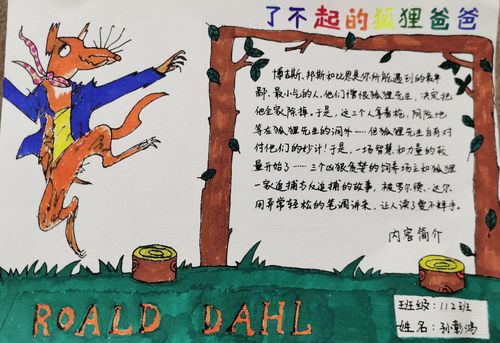 了不起的狐狸爸爸
博吉斯、邦斯和比恩是你所能遇到的最卑
鄙、最小气的人,他们憎恨狐狸先生,决定把
他全家除掉。于是,这三个人拿着枪,阴险地
等在狐狸先生的洞外……但狐狸先生自有对
付他们的妙计!于是,一场智慧和力量的较
量开始了……三个凶狠贪婪的饲养场主和狐狸
一家追捕与反追捕的故事,被罗尔德·达尔
用异常轻松的笔调讲来,让人读了爱不释手。
内容简介
ROALD DAHL
班级:112班
姓名:孙彰鸿